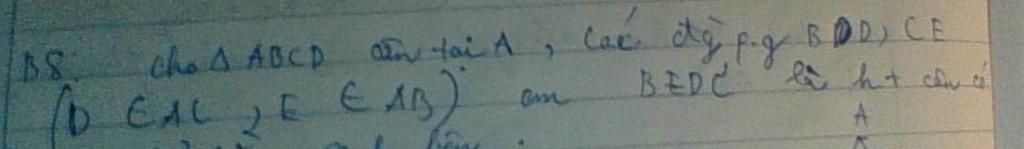 B8. Cho Δ ABCD cân tại A, các đg p.g BD, CE
(D ∈ AC, E ∈ AB) cm BEDC là ht cân có
A